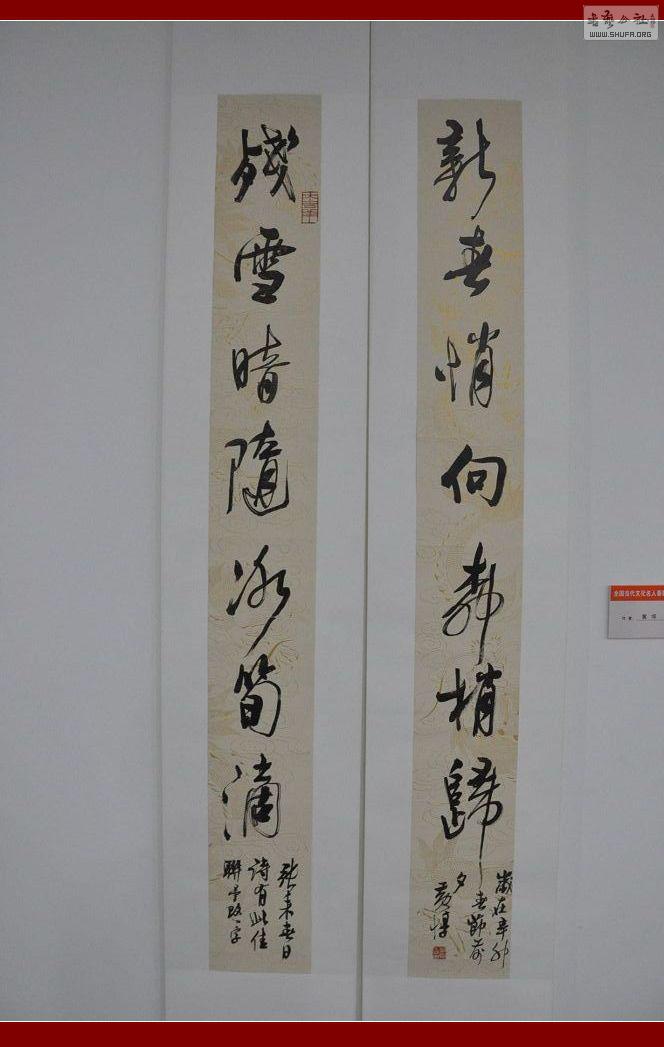 書法公社
WWW.SHUFA.ORG
殘雪暗隨冰筍滴
張耒春日
詩有此佳
聯予改一字
新春悄向柳梢歸
歲在辛卯
春節前
夕
黃惇
全国当代文化名人
作者 黄惇